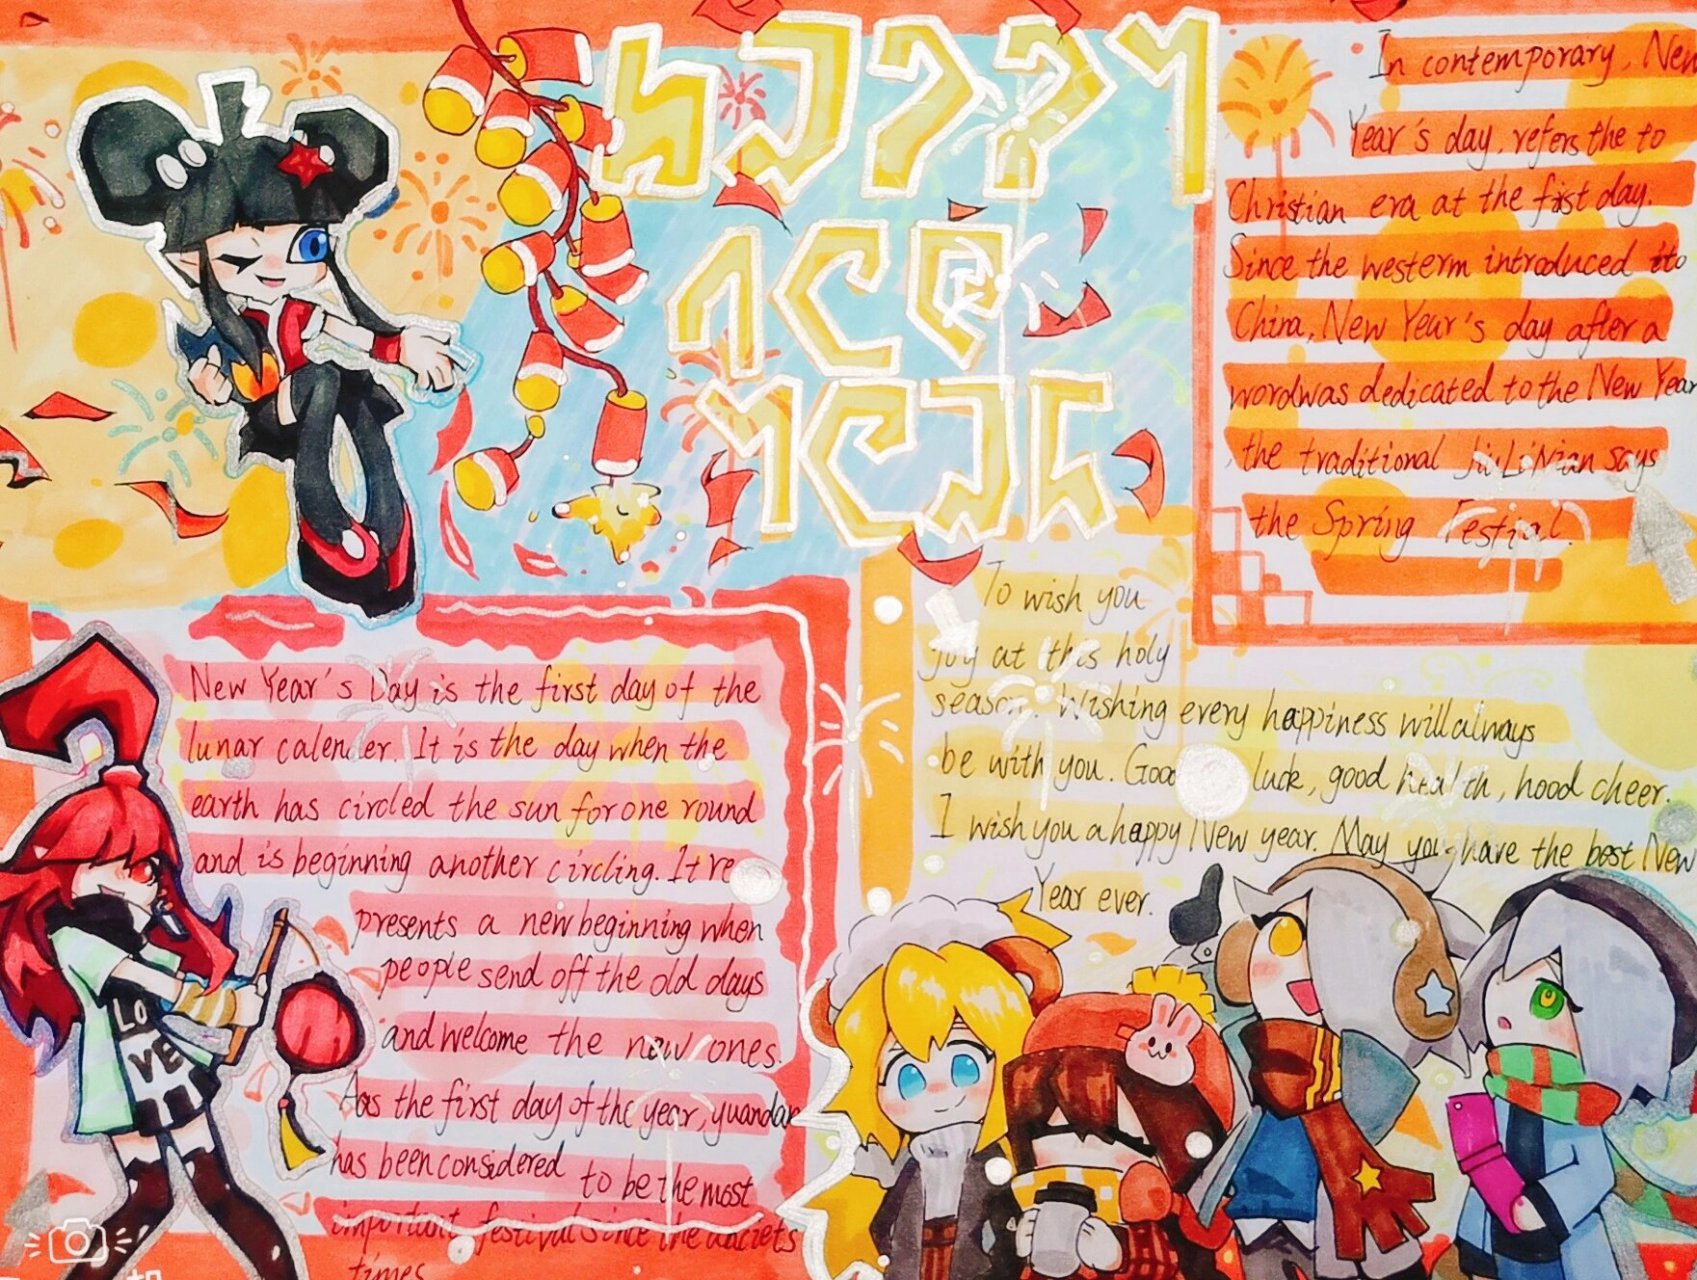 HAPPY
NEW
YEAR
In contemporary, New
Year's day, refers the to
Christian era at the first day.
Since the westerm introduced ito
China, New Year's day after a
wordwas dedicated to the New Year
, the traditional Jiu Li Nian says
the Spring Festial.
To wish you
joy at this holy
season. Wishing every happiness will always
be with you. Good luck, good health, hood cheer.
I wish you a happy New year. May you have the best New
Year ever.
New Year's Day is the first day of the
lunar calender. It is the day when the
earth has circled the sun for one round
and is beginning another circling. It re
presents a new beginning when
people send off the old days
and welcome the new ones.
Aas the first day of the year, yuandan
has been considered to be the most
important festival since the anciets
times
LO
VE